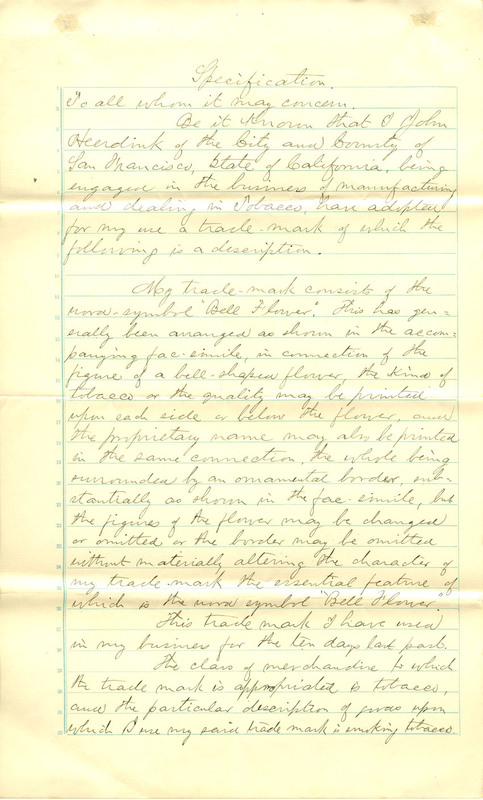 Specification.
To all whom it may concern.
Be it Known that I John
Heerdink of the City and County of
San Francisco, State of California, being
engaged in the business of manufacturing
and dealing in Tobacco, have adopted
for my use a trade-mark of which the
following is a description.
My trade-mark consists of the
word-symbol "Bell Flower". This has gen-
erally been arranged as shown in the accom-
panying fac-simile, in connection of the
figure of a bell-shaped flower, the kind of
tobacco or the quality may be printed
upon each side or below the flower, and
the proprietary name may also be printed
in the same connection, the whole being
surrounded by an ornamental border, sub-
stantially as shown in the fac-simile, but
the figures of the flower may be changed
or omitted or the border may be omitted
without materially altering the character of
my trade-mark the essential feature of
which is the word symbol "Bell Flower".
This trade mark I have used
in my business for the ten days last past.
The class of merchandise to which
the trade mark is appropriated is tobacco,
and the particular description of goods upon
which I use my said trade mark is smoking tobacco.